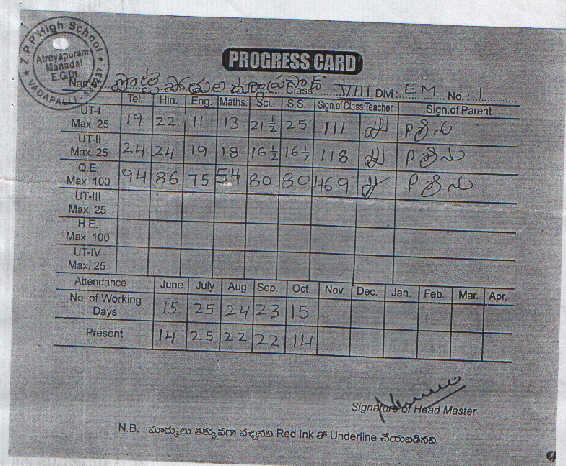 Z.P.P. High School
Atreyapuram
Mandal
E.G.Dt.
VADAPALLI
PROGRESS CARD
Name VIII DM: EM No. 1
Tel. Hin. Eng. Maths. Sci. S.S. Sign of Class Teacher Sign. of Parent
UT-I Max. 25 19 22 11 13 21 ½ 25 111
UT-II Max. 25 24 24 19 18 16 ½ 16 ½ 118
Q.E. Max. 100 94 86 75 54 80 80 469
UT-III Max. 25
H.E. Max. 100
UT-IV Max. 25
Attendance June July Aug Sep. Oct Nov. Dec. Jan. Feb. Mar. Apr.
No. of Working Days 15 25 24 23 15
Present 14 25 22 22 14
Signature of Head Master
N.B. మార్కులు తక్కువగా వచ్చినచో Red Ink తో Underline చేయబడినవి